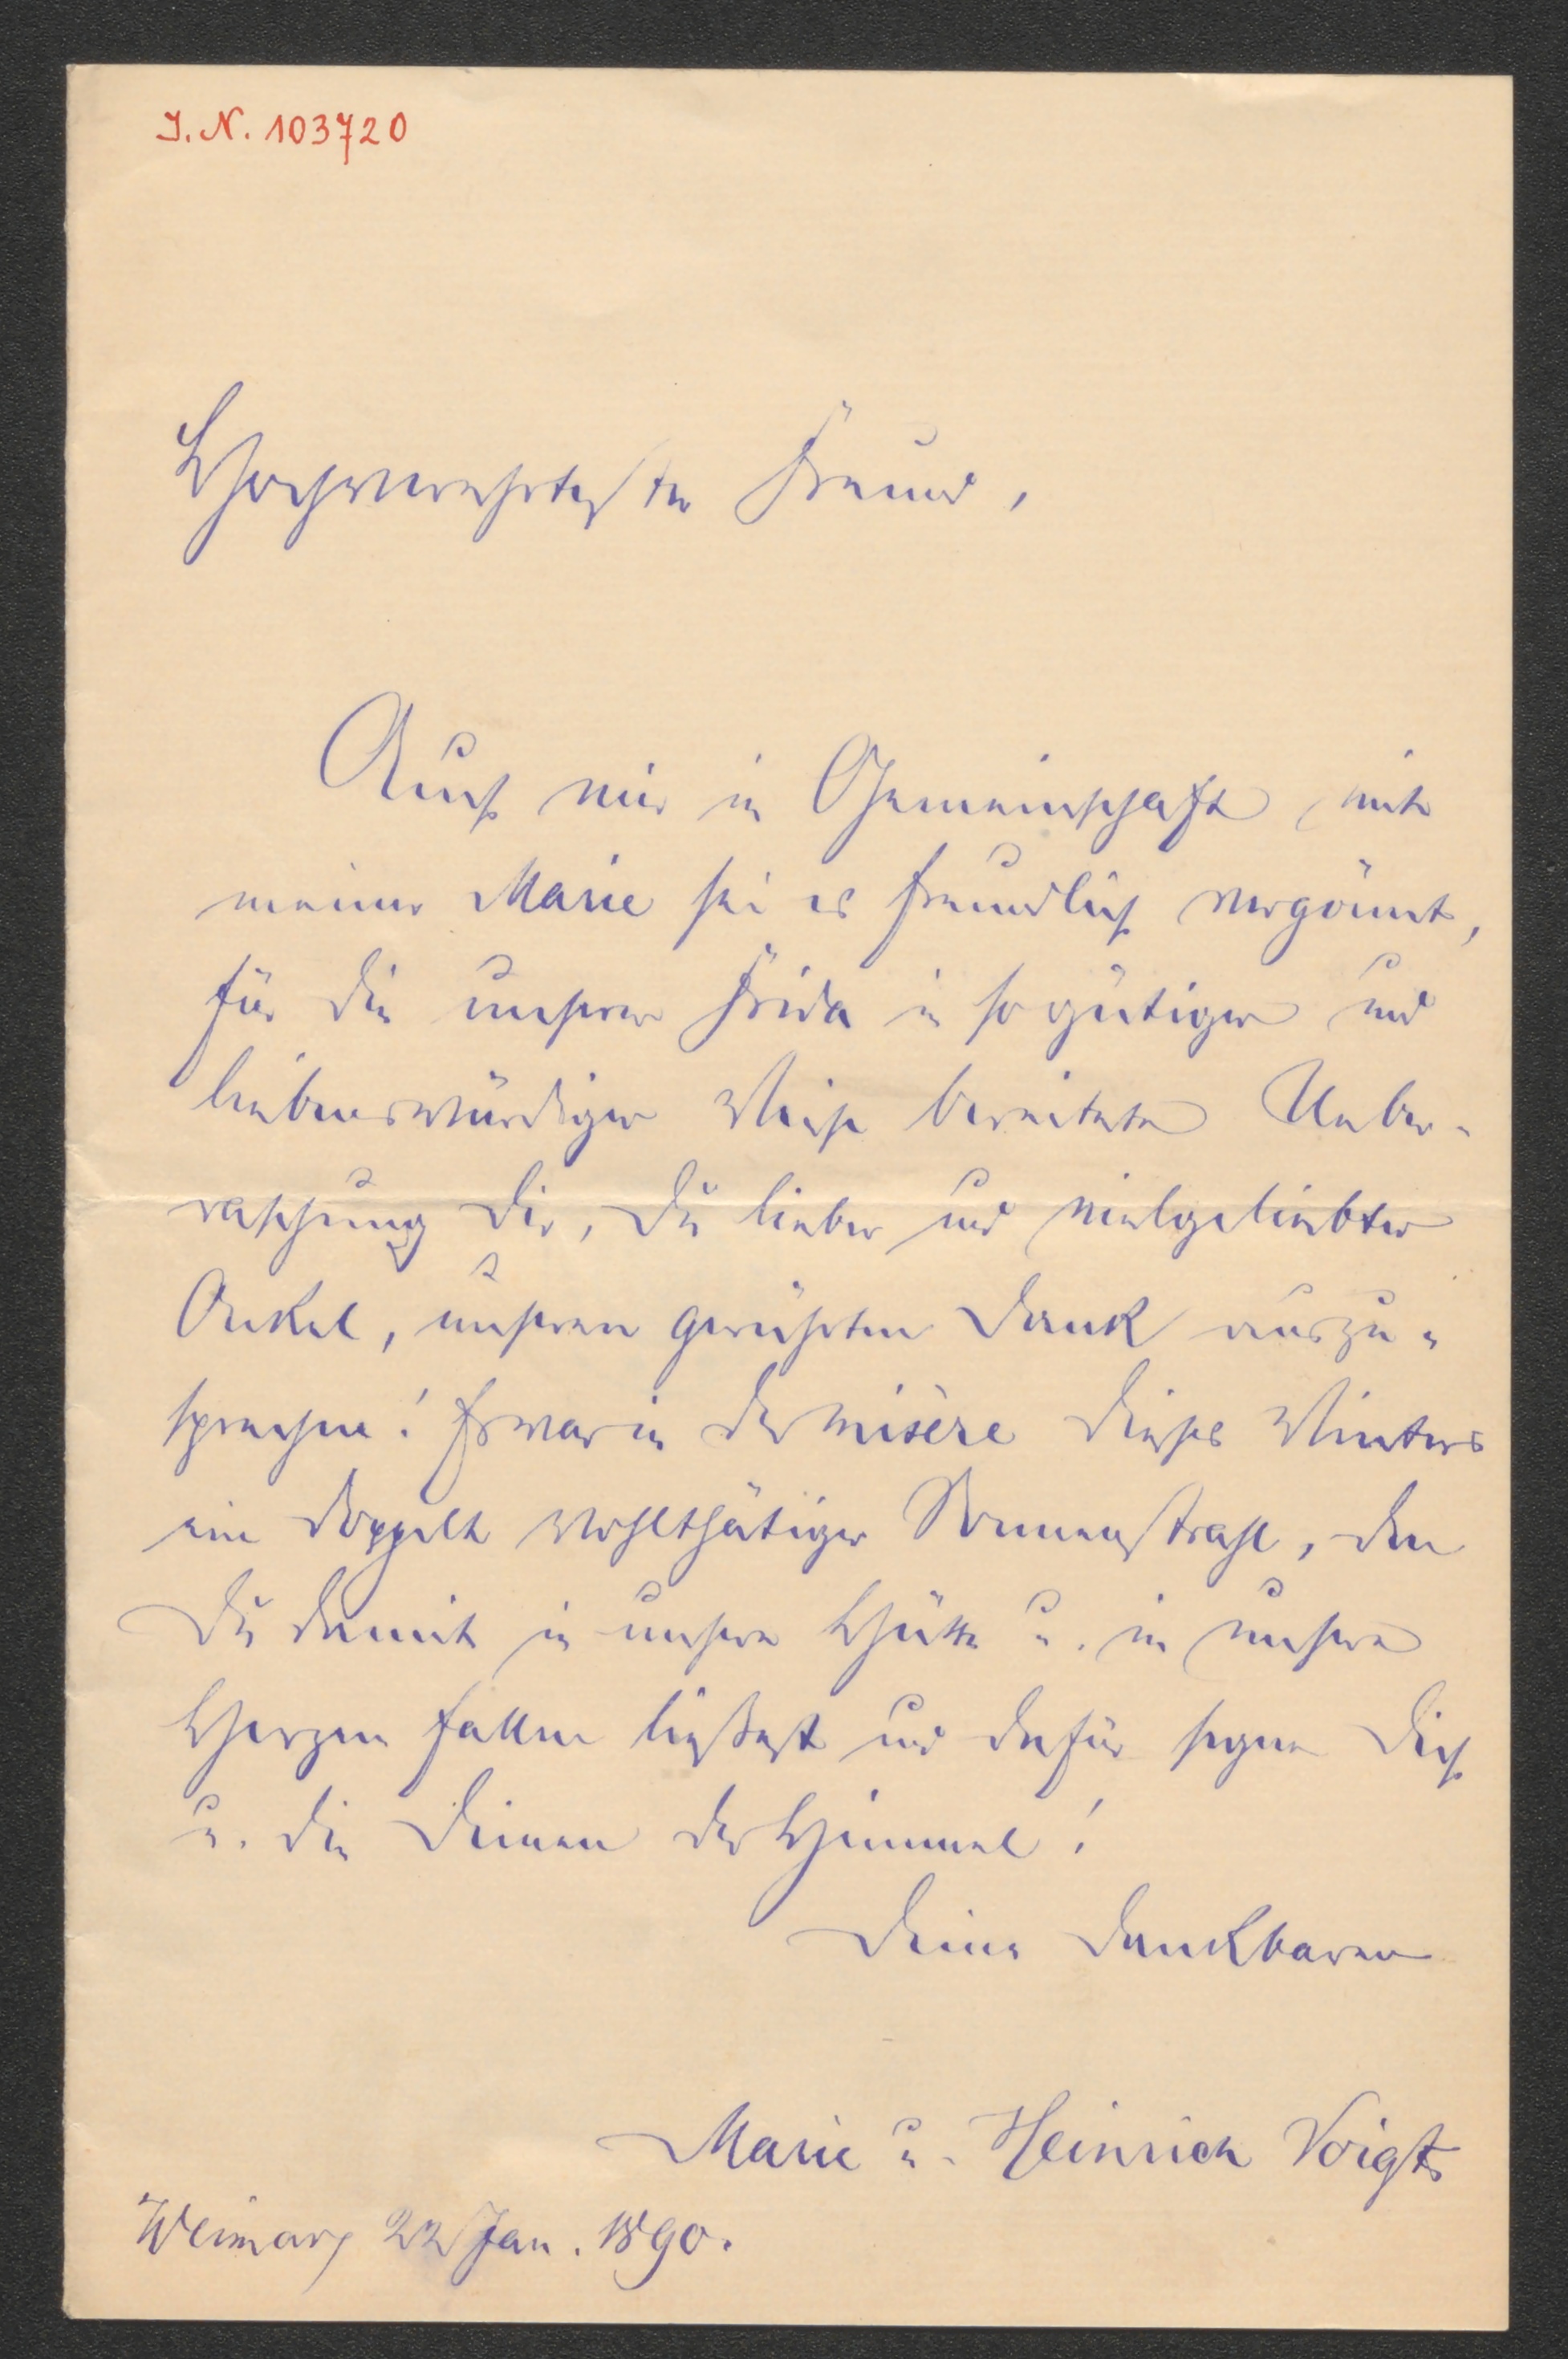 I. N. 103720
Hochverehrtester Freund,
Auch mir in Gemeinschaft mit
meiner Marie sei es freundlich vergönnt,
für die unserer Frida in so gütiger und
liebenswürdiger Weise bereitete Ueber-
raschung Dir, Du lieber und vielgeliebter
Onkel, unseren gerührten Dank auszu-
sprechen! Es war in der misère dieses Winters
ein doppelt wohlthätiger Sonnenstrahl, den
Du damit in unsere Hütte u. in unsere
Herzen fallen ließest und dafür segne Dich
u. die Deinen der Himmel!
Deine dankbaren
Marie u. Heinrich Voigt
Weimar, 22 Jan. 1890.